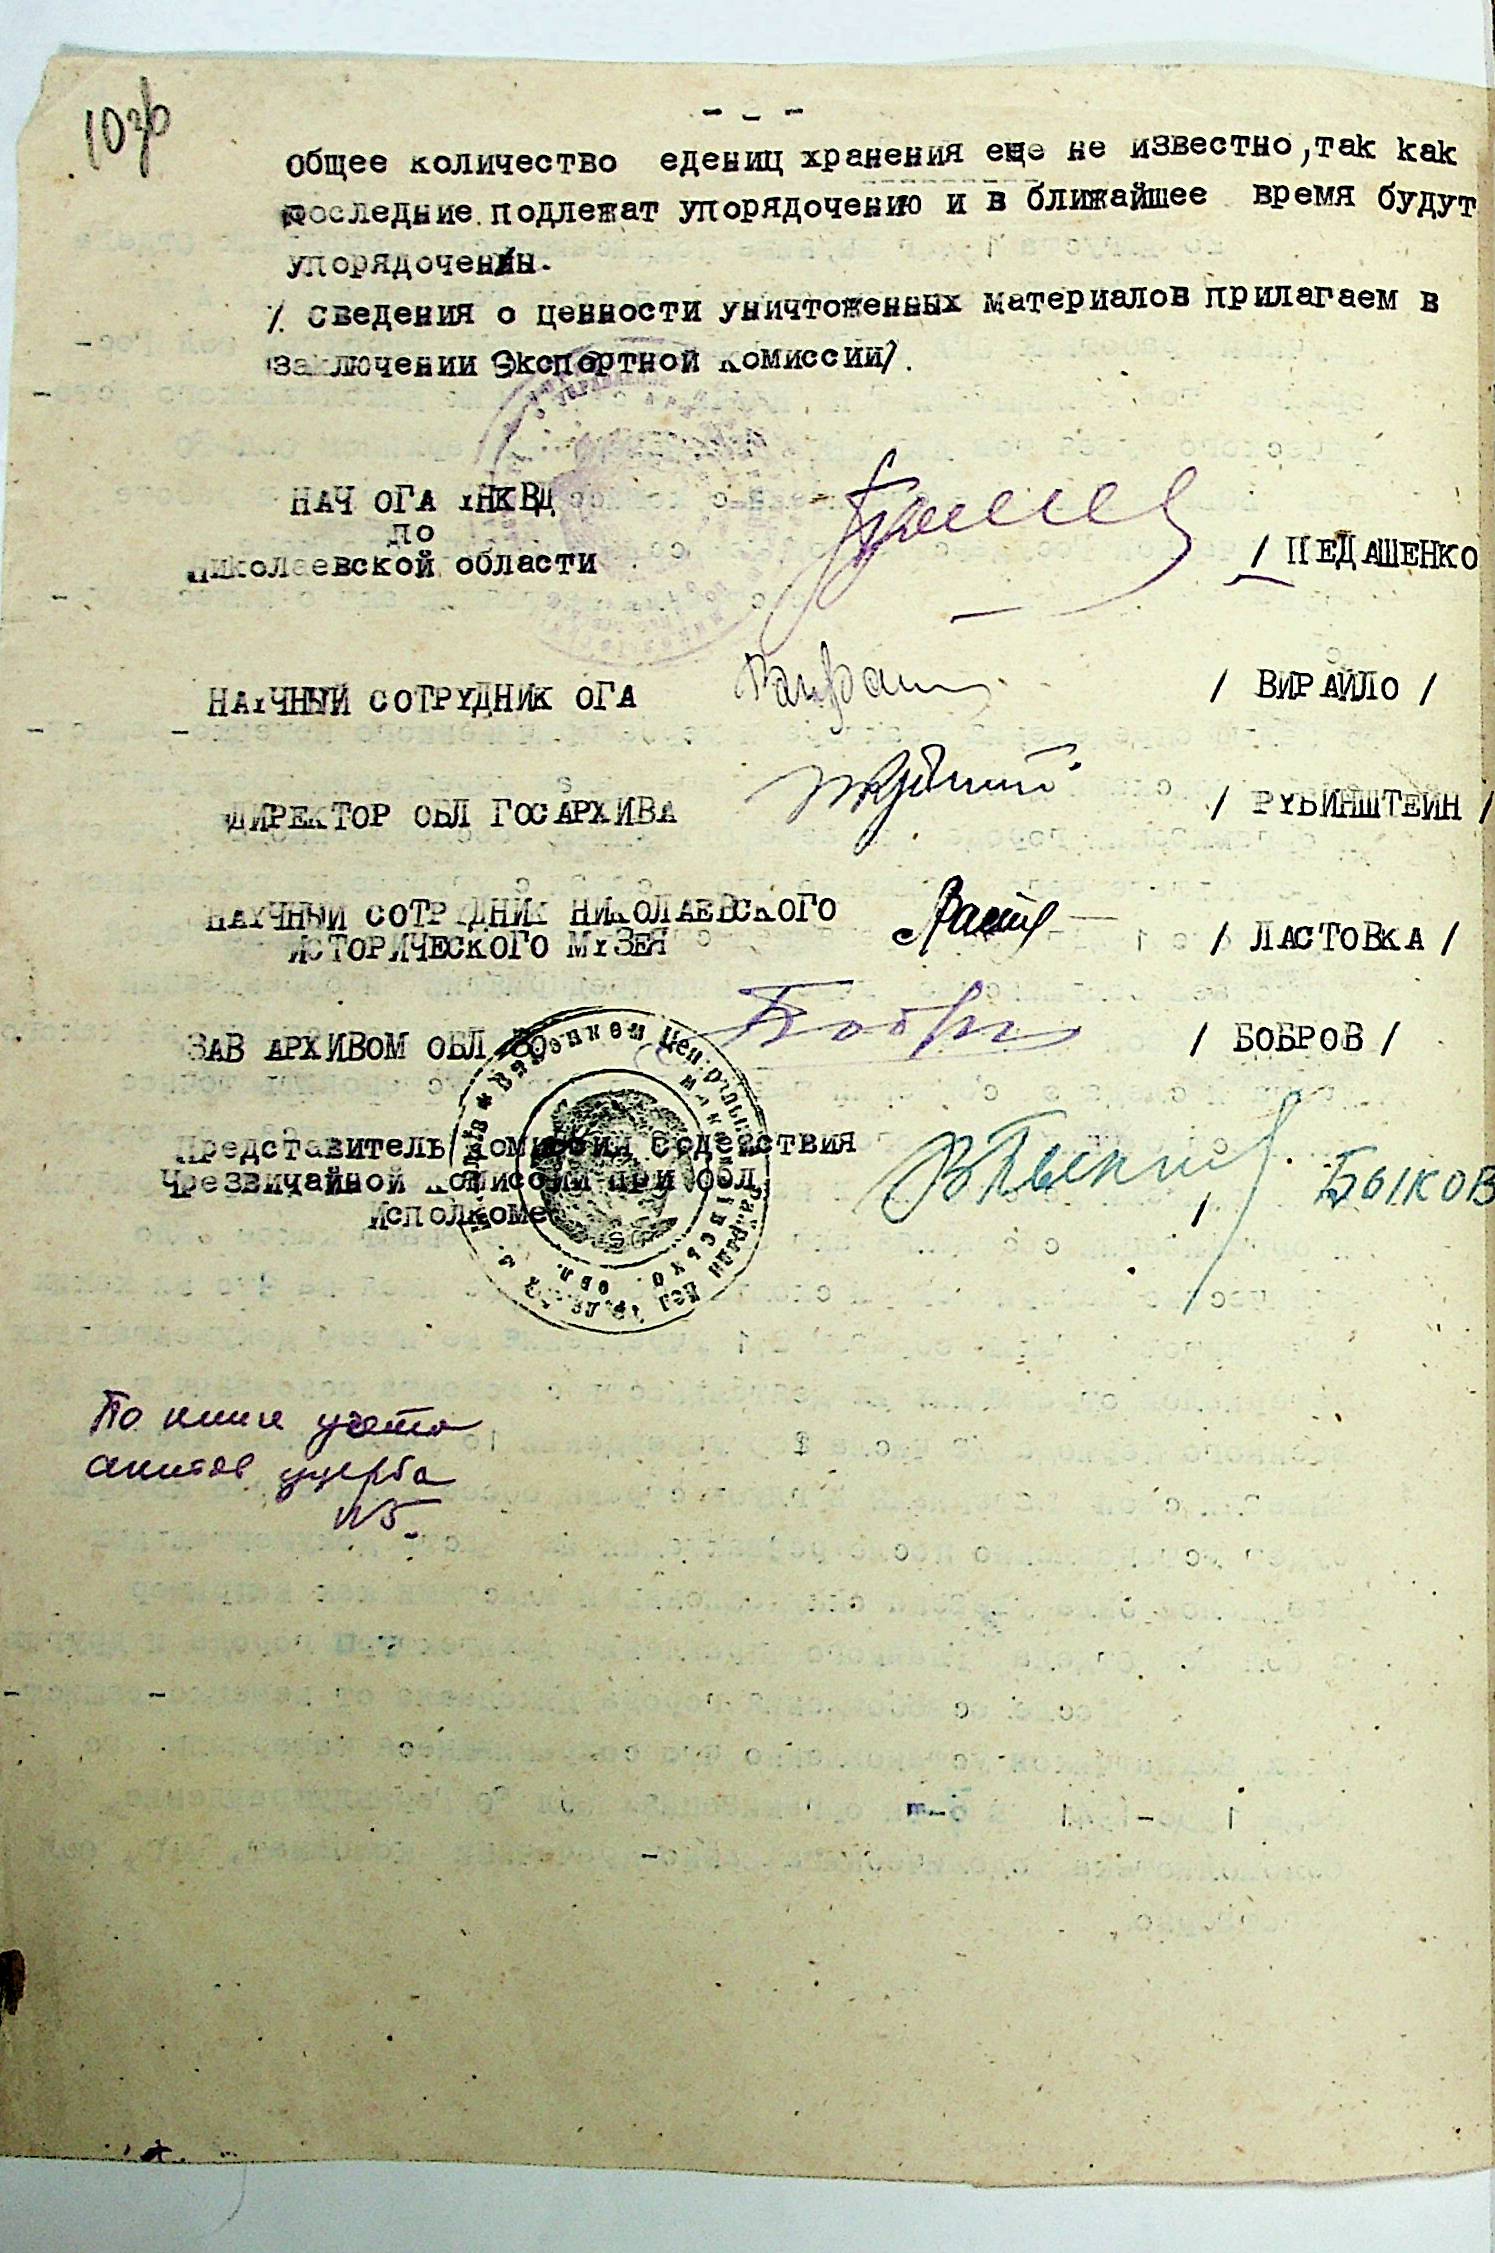 103б
общее количество едениц хранения еще не известно, так как
последние подлежат упорядочению и в ближайшее время будут
упорядоченын.
/. Сведения о ценности уничтоженных материалов прилагаем в
заключении Экспертной комиссии/.
НАЧ ОГА УНКВД
по
Николаевской области
/ ПЕДАШЕНКО
НАУЧНЫЙ СОТРУДНИК ОГА
/ ВИРАЙЛО /
ДИРЕКТОР ОБЛ ГОСАРХИВА
/ РУБИНШТЕЙН /
НАУЧНЫЙ СОТРУДНИК НИКОЛАЕВСКОГО
ИСТОРИЧЕСКОГО МУЗЕЯ
/ ЛАСТОВКА /
ЗАВ АРХИВОМ ОБЛ
Бобров
/ БОБРОВ /
Представитель Комиссии Содействия
Чрезвичайной комиссии при обл
Исполкоме
ВБыков
/ Быков
По книге учета
актов ущерба
N5.